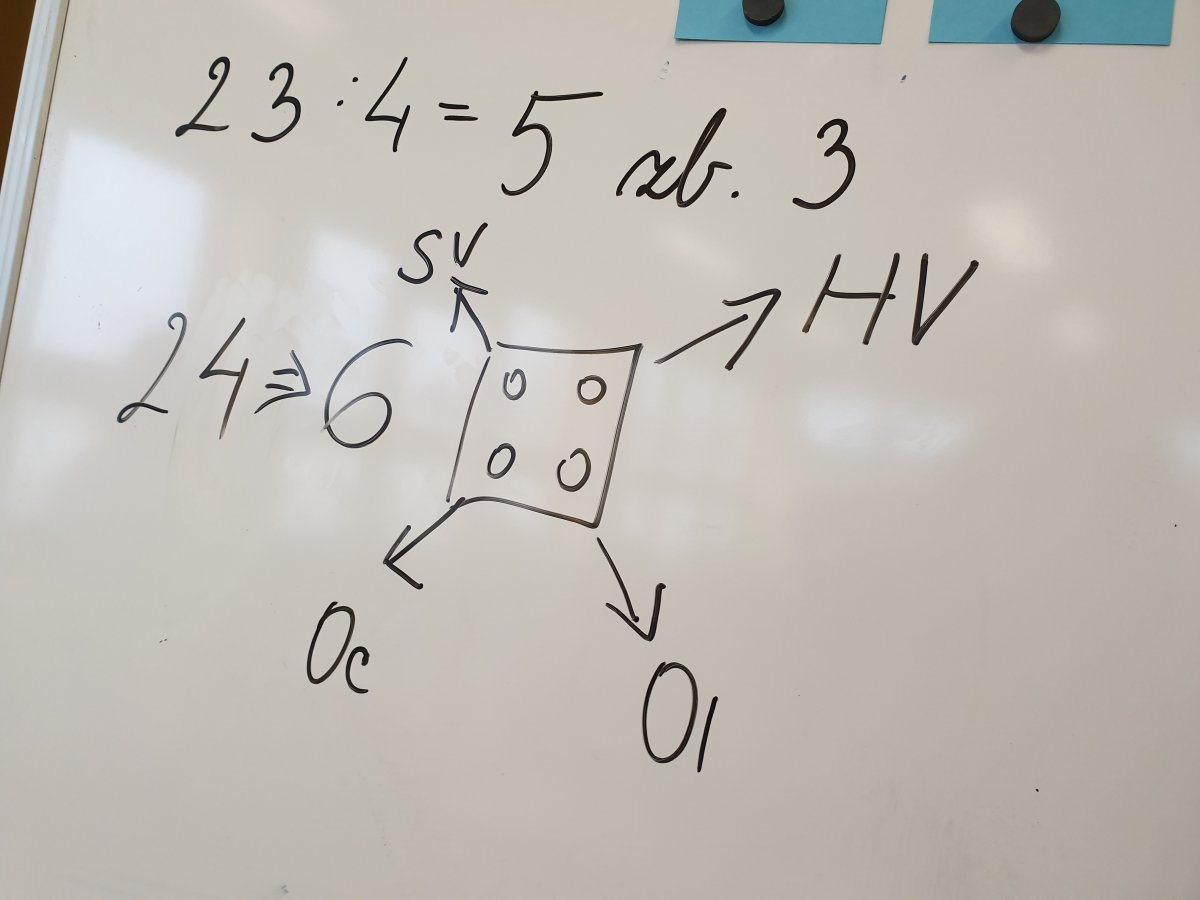 23 : 4 = 5 zb. 3
SV
HV
24 ⇒ 6
Oc
Ol